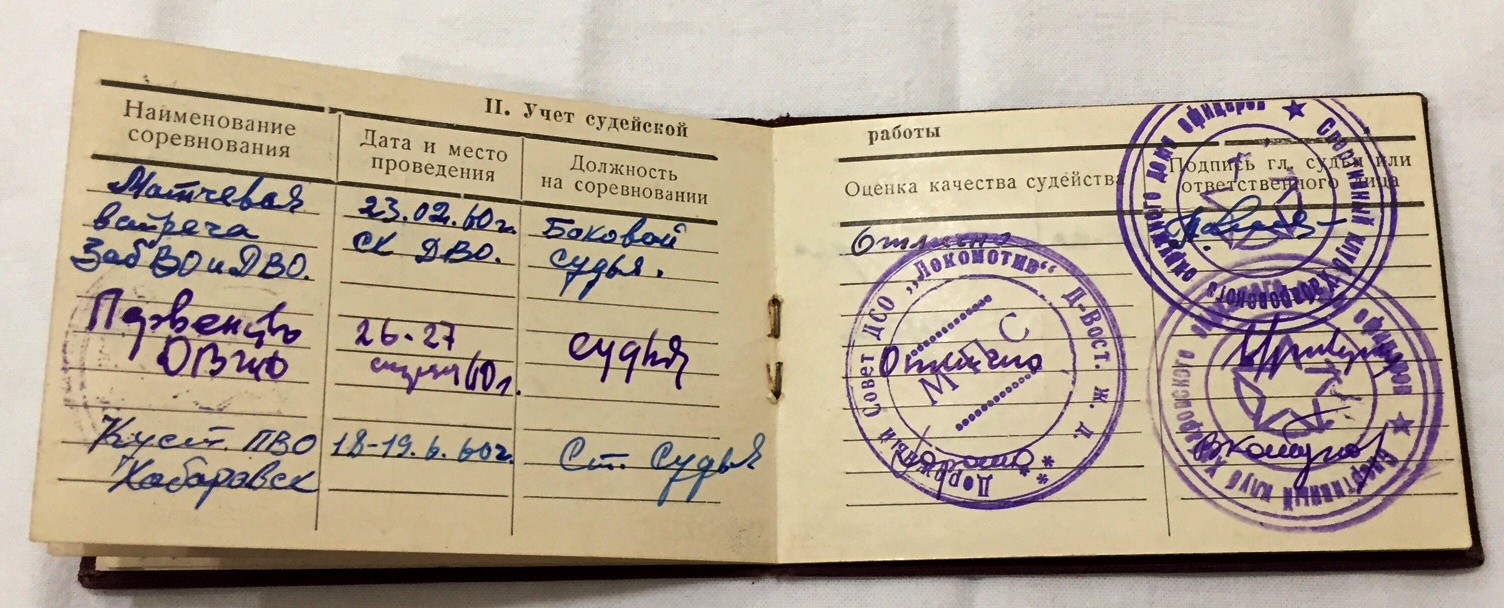 II. Учет судейской
Наименование
соревнования
Дата и место
проведения
Должность
на соревновании
Матчевая
встреча
ЗабВО и ДВО.
23.02.60г.
СК ДВО.
Боковой
судья.
Первенство
26-27
60г.
судья
Куст. ПВО
Хабаровск
18-19.6.60г.
Ст. Судья
работы
Оценка качества судейства
Подпись гл. судьи или
ответственного лица
Отлично
Отлично
Хорошо
Дорожный Совет ДСО „Локомотив“ Д-Вост. ж. д. **
М П С
Спортивный клуб Хабаровского окружного дома офицеров ★
Спортивный клуб Хабаровского окружного дома офицеров ★